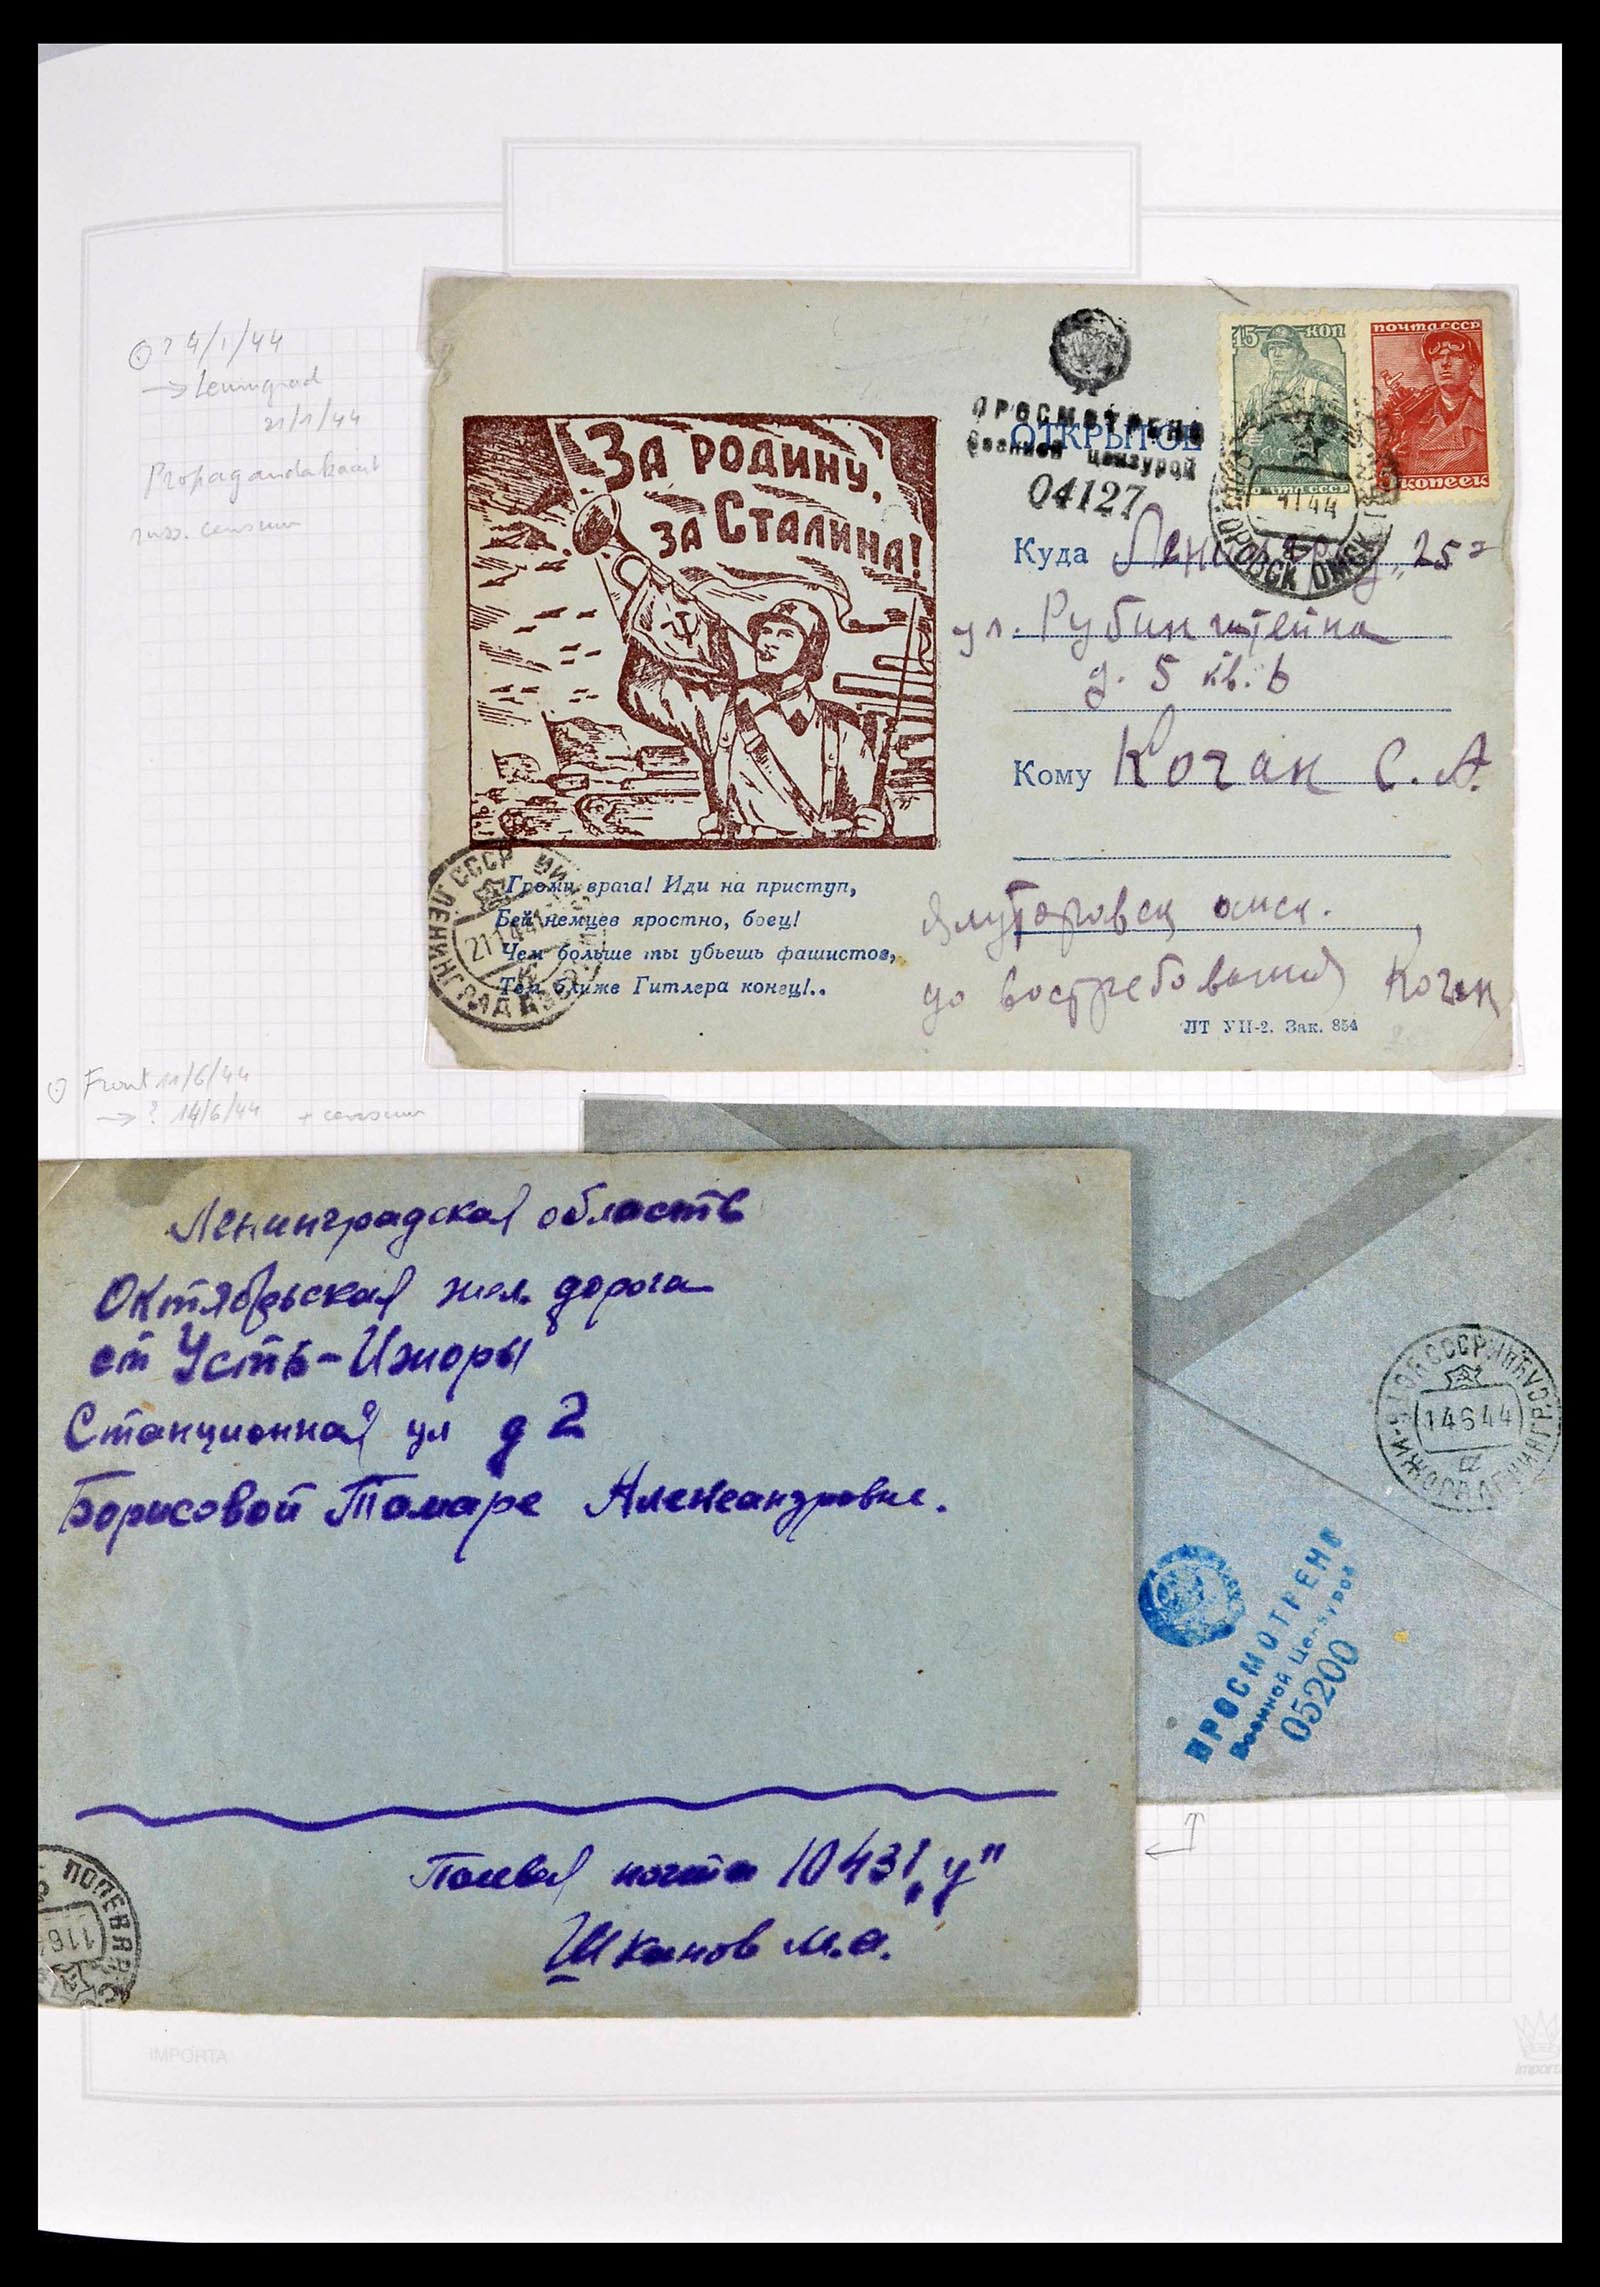 ? 4/1/44
→ Leningrad
21/1/44
Propagandakaart
russ. censuur
ПРОСМОТРЕНО
Военной цензурой
04127
ОТКРЫТОЕ
15 КОП
ПОЧТА СССР
ПОЧТА СССР
КОПЕЕК
ОМСК
1 44
ЗА РОДИНУ,
ЗА СТАЛИНА!
Куда Ленинград, 25
ул. Рубинштейна
д. 5 кв. 6
Кому Кочак С. А.
Громи врага! Иди на приступ,
Бей немцев яростно, боец!
Чем больше ты убьешь фашистов,
Тем ближе Гитлера конец!..
ЛЕНИНГРАД СССР
21 1 44
Ялуторовск омск.
до востребования Кочак
ЛТ УП-2. Зак. 854
Front 11/6/44
→ ? 14/6/44 + censuur
Ленинградская область
Октябрьская жел. дорога
ст Усть-Ижоры
Станционная ул д 2
Борисовой Тамаре Александровне.
Полевая почта 10431 „У"
Шканов М.а.
ПОЛЕВАЯ
11 6
СССР
14 6 44
ИЖОРА ЛЕНИНГР.
ПРОСМОТРЕНО
Военной Цензурой
05200
IMPORTA
importa